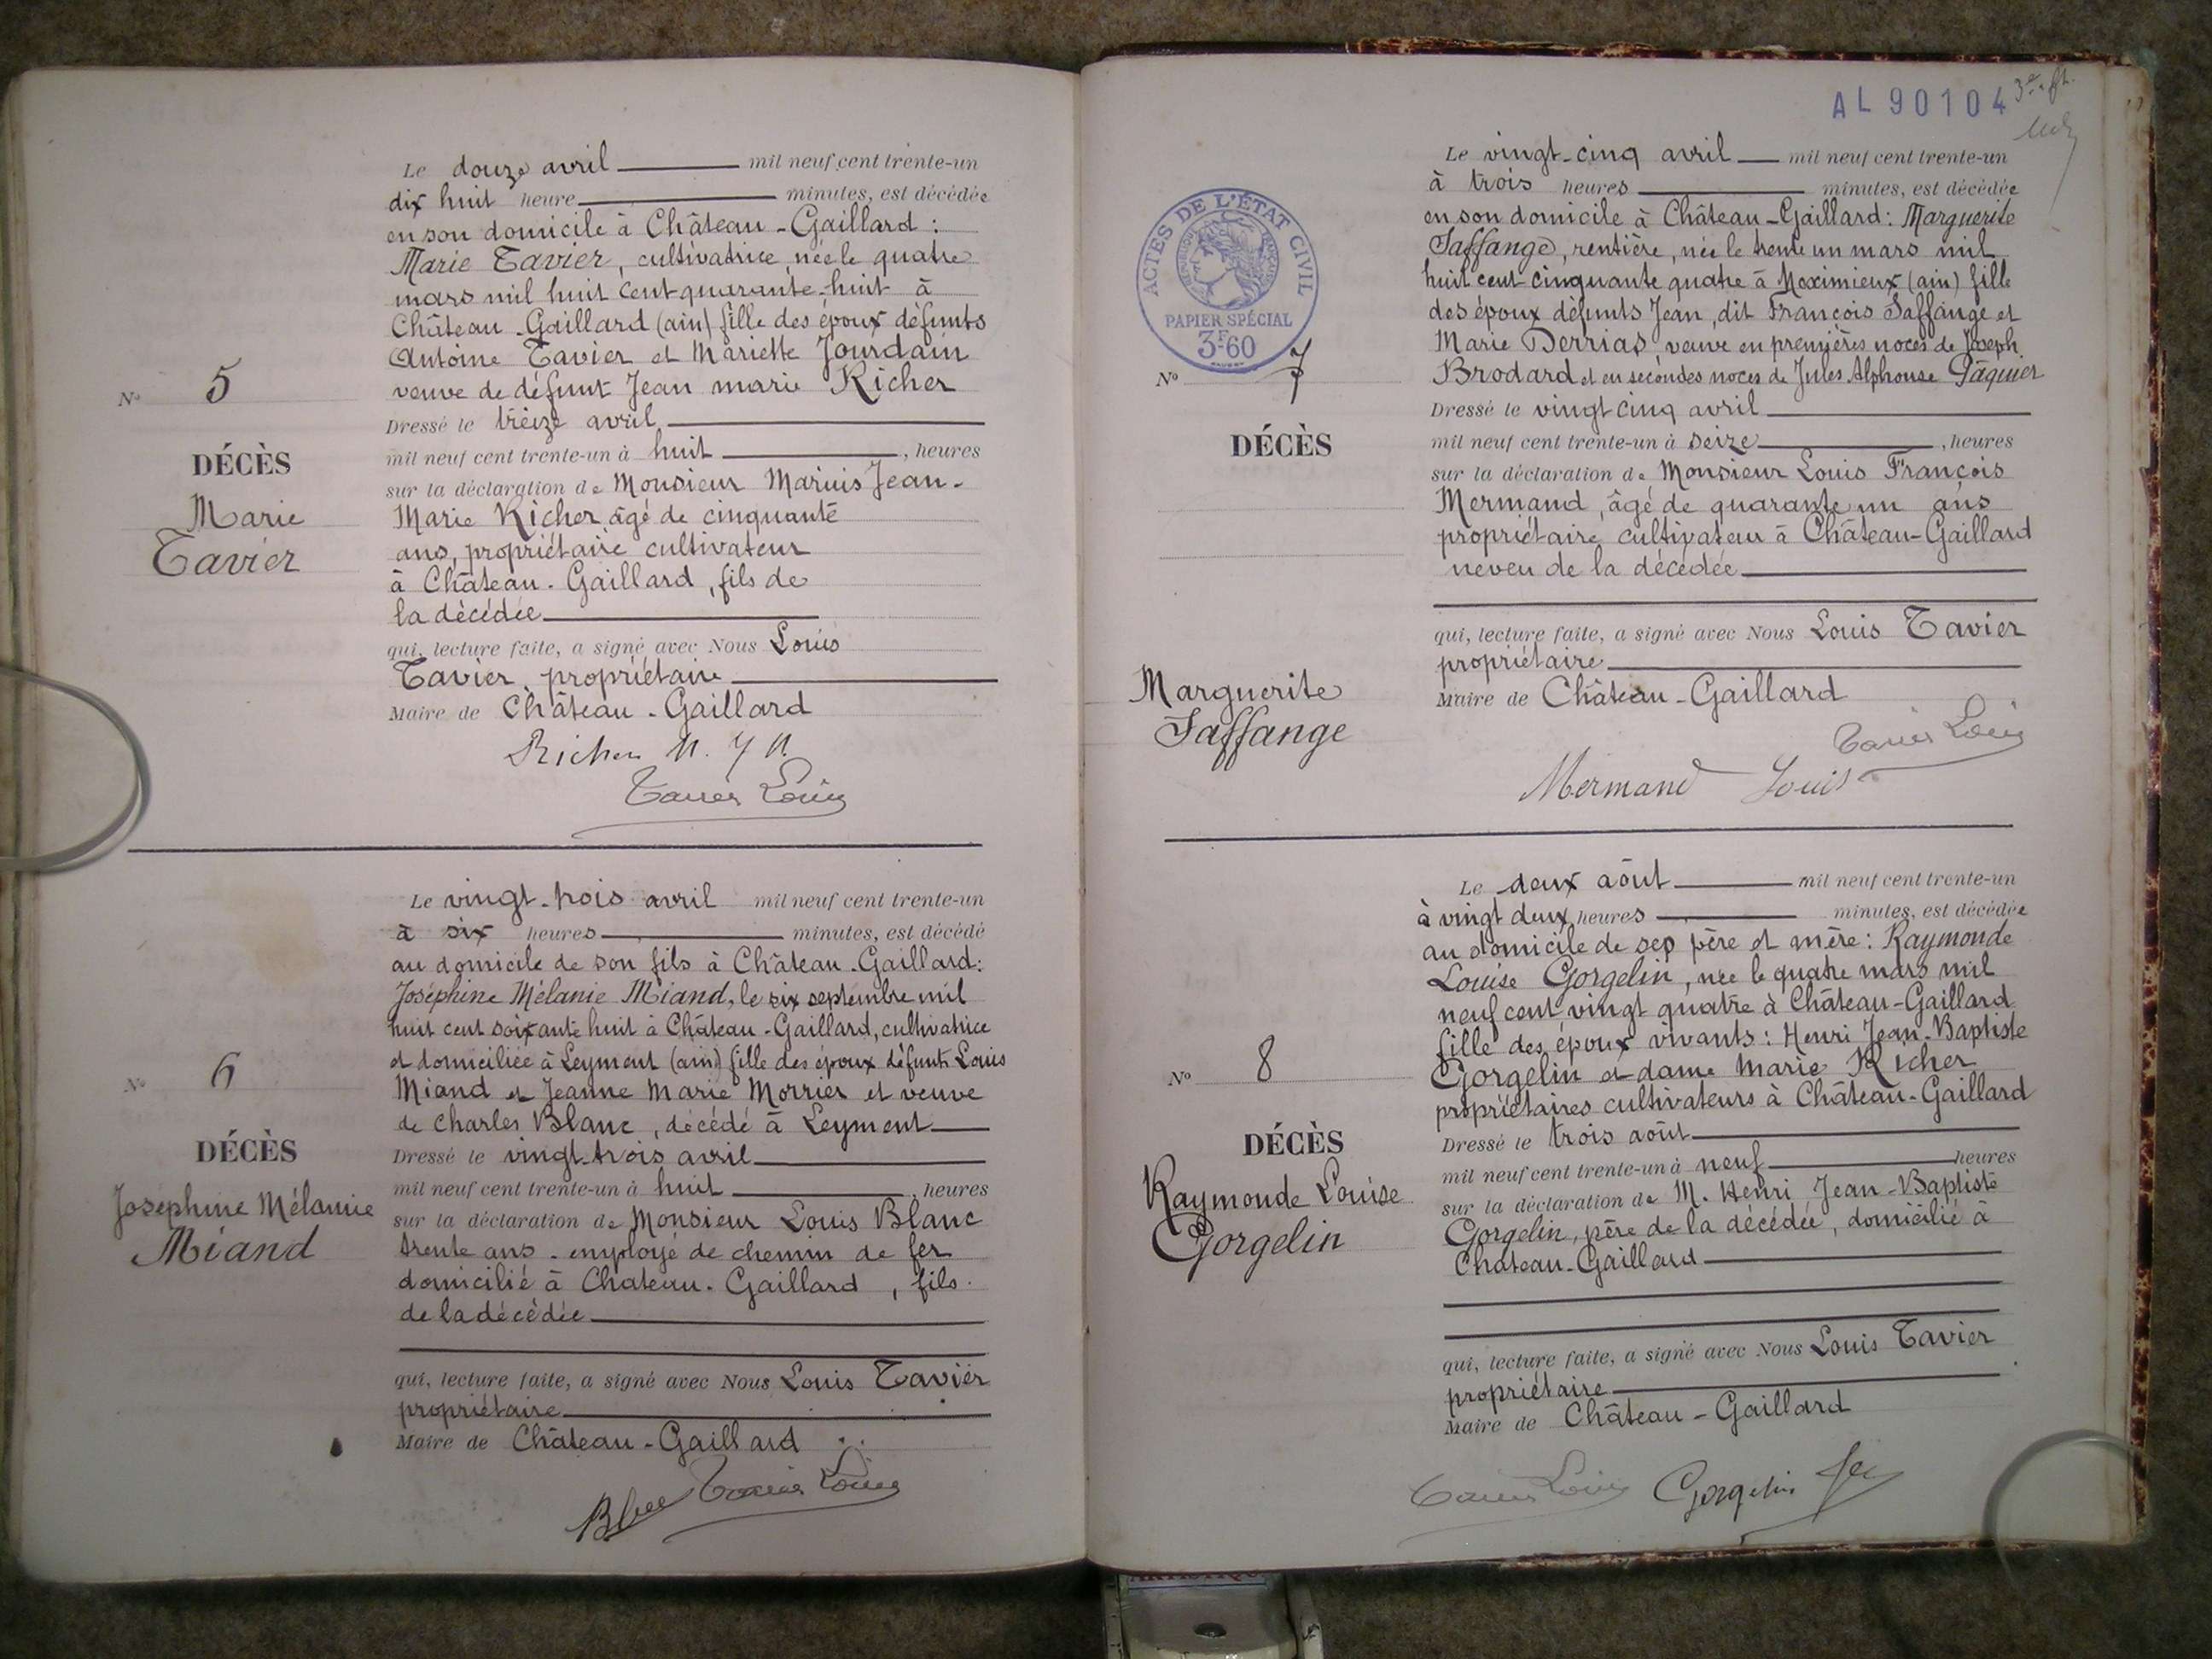 Le douze avril mil neuf cent trente-un
dix huit heure minutes, est décédée
en son domicile à Château-Gaillard :
Marie Tavier, cultivatrice, née le quatre
mars mil huit cent quarante-huit à
Château-Gaillard (ain) fille des époux défunts
Antoine Tavier et Mariette Jourdain
veuve de défunt Jean marie Richer
Dressé le treize avril
mil neuf cent trente-un à huit , heures
sur la déclaration de Monsieur Marius Jean-
Marie Richer âgé de cinquante
ans, propriétaire cultivateur
à Château-Gaillard, fils de
la décédée
qui, lecture faite, a signé avec Nous Louis
Tavier, propriétaire
Maire de Château-Gaillard
Richer
Tavier Louis
N° 5
DÉCÈS
Marie
Tavier
Le vingt-trois avril mil neuf cent trente-un
à six heures minutes, est décédé
au domicile de son fils à Château-Gaillard:
Joséphine Mélanie Miand, le six septembre mil
huit cent soixante huit à Château-Gaillard, cultivatrice
et domiciliée à Leyment (ain) fille des époux défunts Louis
Miand et Jeanne Marie Morrier et veuve
de Charles Blanc, décédé à Leyment
Dressé le vingt-trois avril
mil neuf cent trente-un à huit , heures
sur la déclaration de Monsieur Louis Blanc
trente ans - employé de chemin de fer
domicilié à Chateau-Gaillard, fils
de la décédée
qui, lecture faite, a signé avec Nous Louis Tavier
propriétaire
Maire de Château-Gaillard
Tavier Louis
N° 6
DÉCÈS
Joséphine Mélanie
Miand
AL 90104
ACTES DE L'ÉTAT CIVIL
PAPIER SPÉCIAL
3F60
Le vingt-cinq avril mil neuf cent trente-un
à trois heures minutes, est décédée
en son domicile à Château-Gaillard: Marguerite
Saffange, rentière, née le trente un mars mil
huit cent cinquante quatre à Meximieux (ain) fille
des époux défunts Jean, dit François Saffange et
Marie Derrias, veuve en premières noces de Joseph
Brodard et en secondes noces de Jules Alphonse Pâquier
Dressé le vingt cinq avril
mil neuf cent trente-un à seize , heures
sur la déclaration de Monsieur Louis François
Mermand, âgé de quarante un ans
propriétaire cultivateur à Château-Gaillard
neveu de la décédée
qui, lecture faite, a signé avec Nous Louis Tavier
propriétaire
Maire de Château-Gaillard
Tavier Louis
Mermand Louis
N° 7
DÉCÈS
Marguerite
Saffange
Le deux août mil neuf cent trente-un
à vingt deux heures minutes, est décédée
au domicile de ses père et mère: Raymonde
Louise Gorgelin, née le quatre mars mil
neuf cent vingt quatre à Château-Gaillard
fille des époux vivants: Henri Jean-Baptiste
Gorgelin et dame Marie Richer
propriétaires cultivateurs à Château-Gaillard
Dressé le trois août
mil neuf cent trente-un à neuf heures
sur la déclaration de M. Henri Jean-Baptiste
Gorgelin, père de la décédée, domicilié à
Chateau-Gaillard
qui, lecture faite, a signé avec Nous Louis Tavier
propriétaire
Maire de Château-Gaillard
Tavier Louis Gorgelin
N° 8
DÉCÈS
Raymonde Louise
Gorgelin